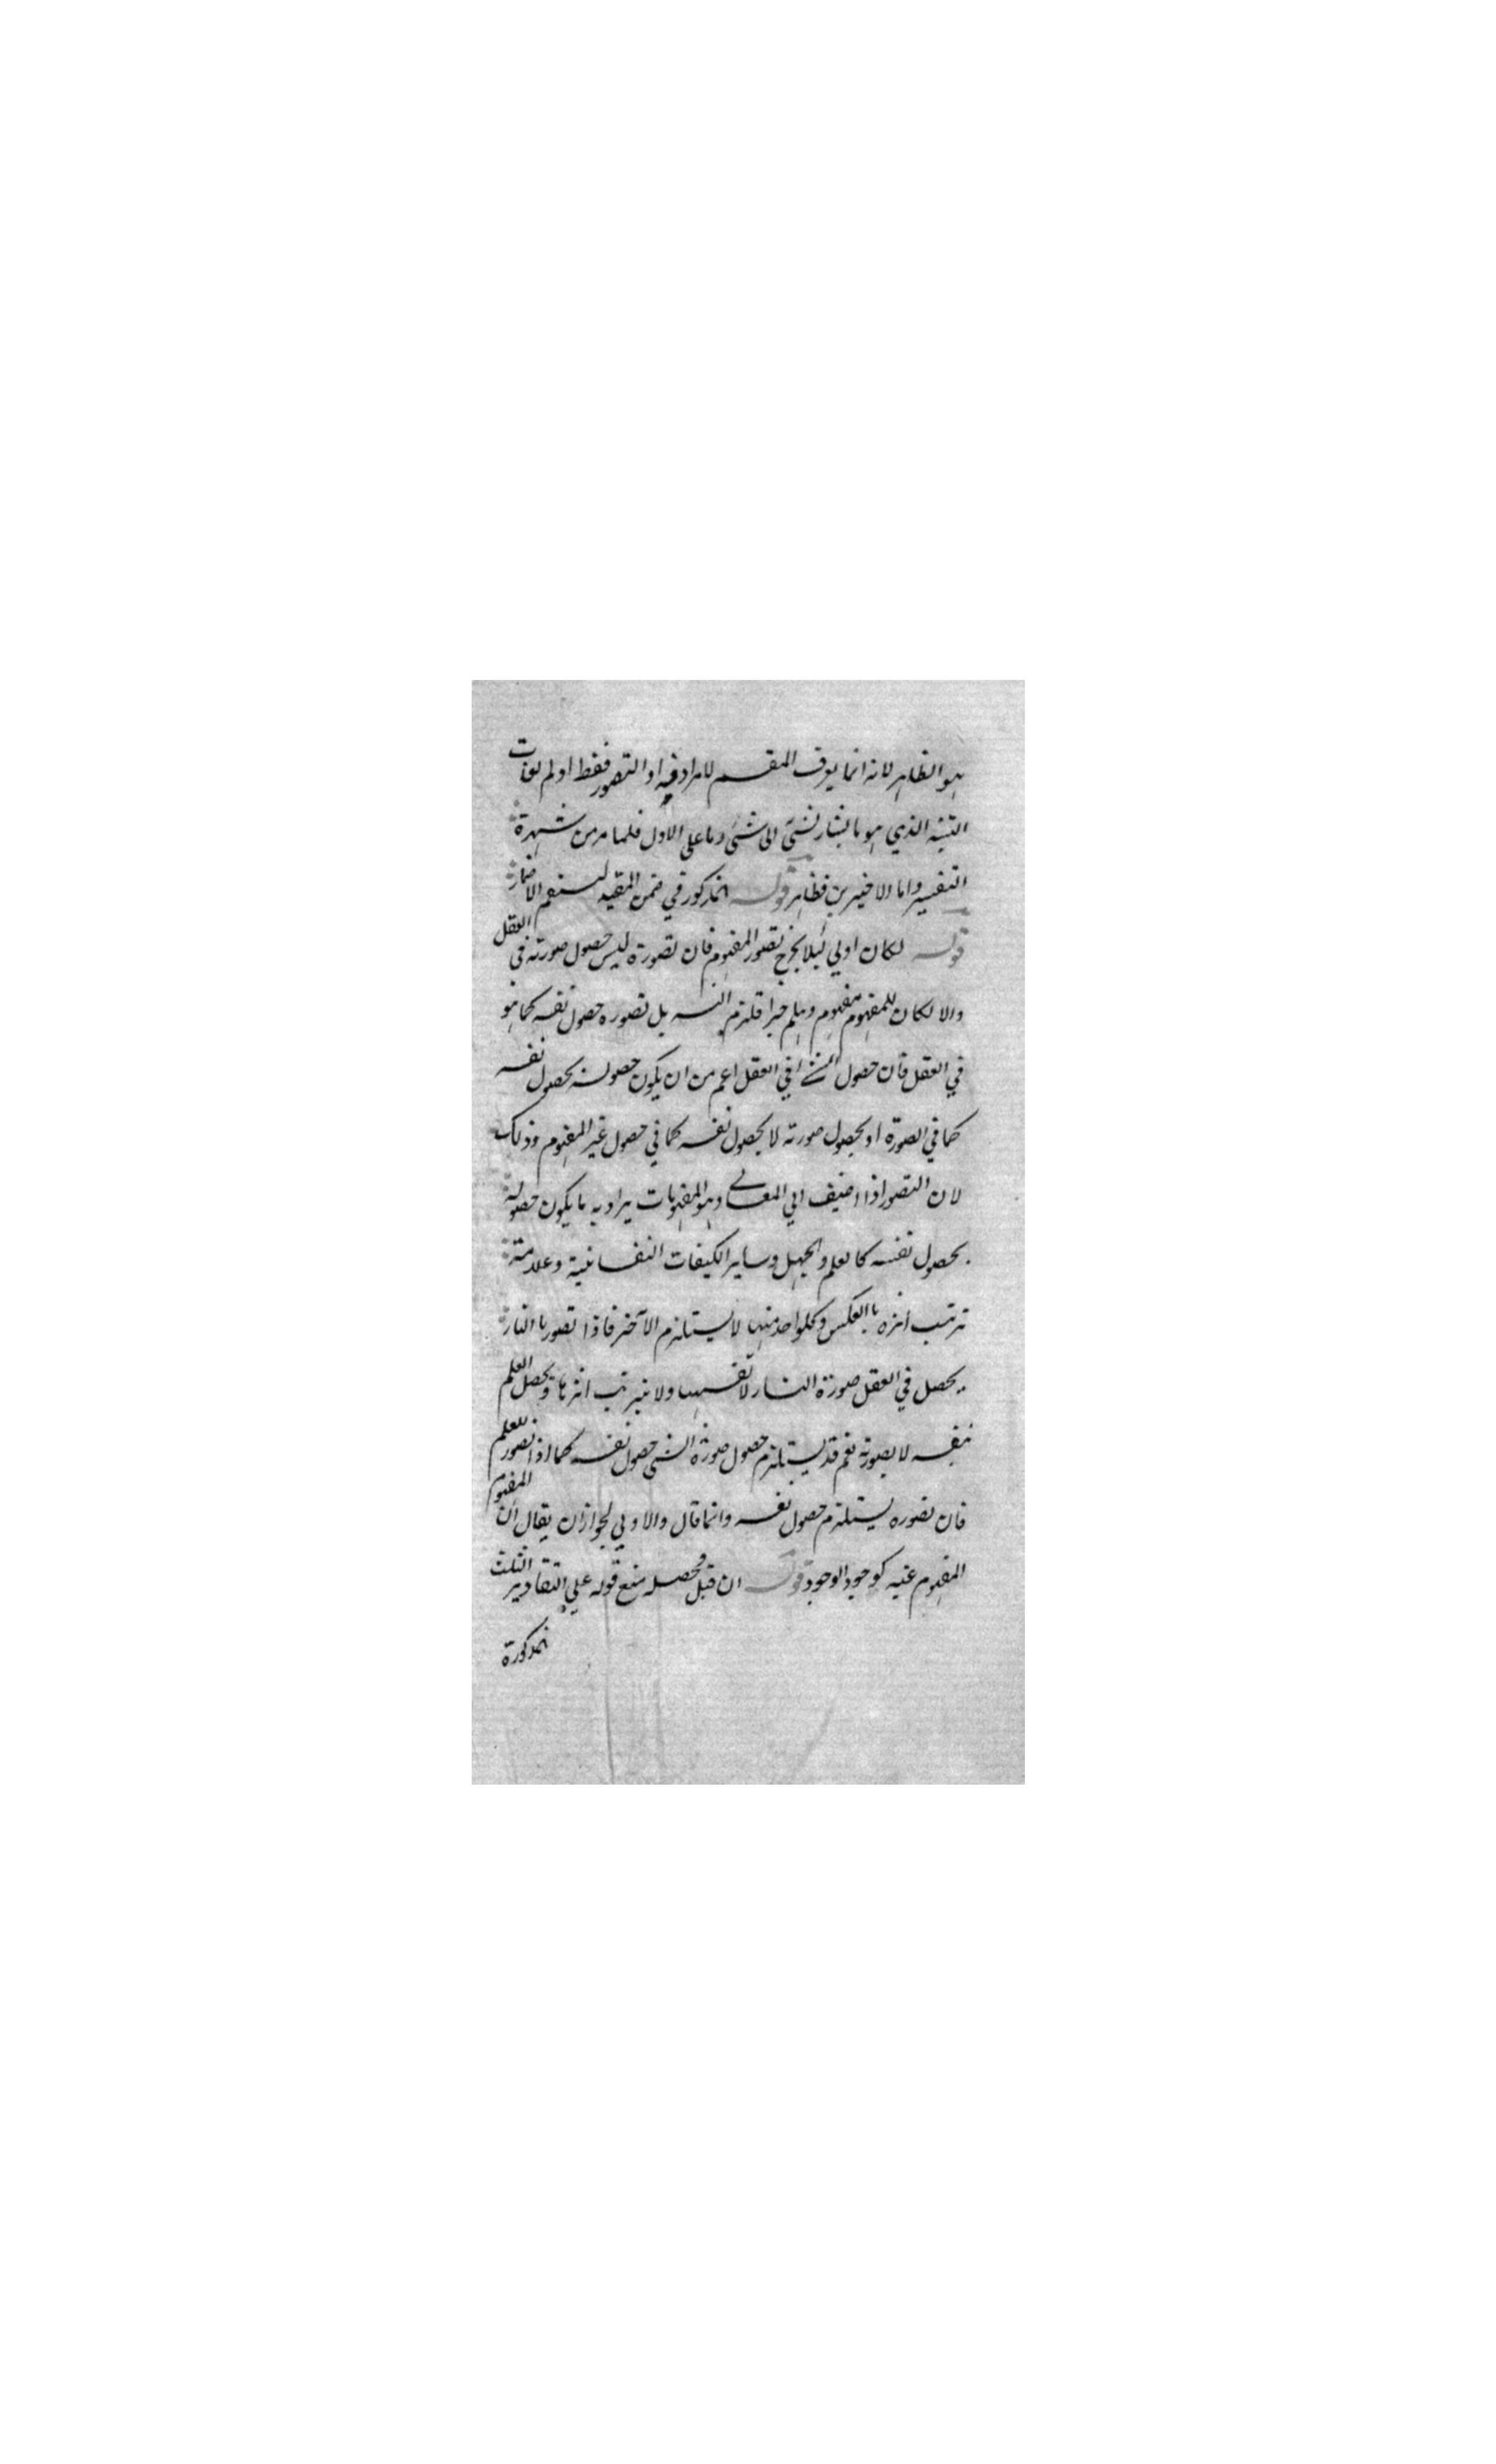 هو الظاهر لانه انما يعرف المقسم لامرادفه او التصور فقط اولم يفات
التنبيه الذي هو ما بشار نشئ الى شئ وما على الاول فلما مر من شهرة
التفسير واما الاخيرين فظاهر قوله المذكور في ضمن المقيد ليستقم الاضمار
قوله لكان اولي لئلا يخرج تصور المفهوم فان تصوره ليس حصول صورته في العقل
والا لكان للمفهوم مفهوم وهلم جرا فلزم التسـ بل تصوره حصول نفسه كما هو
في العقل فان حصول الشئ في العقل اعم من ان يكون حصوله بحصول نفسه
كما في الصورة او بحصول صورته لا بحصول نفسه كما في حصول غير المفهوم وذلك
لان التصور اذا اضيف الي المعاني وهو المفهومات يراد به ما يكون حصوله
بحصول نفسه كالعلم والجهل وساير الكيفات النفسانية وعلامته
ترتب اثره بالعكس وكلواحد منها لا يستلزم الآخر فاذا تصورنا النار
يحصل في العقل صورة النار لا نفسها ولا يترتب اثرها ويحصل العلم
بنفسه لا بصورته نعم قد يستلزم حصول صورة الشئ حصول نفسه كما اذا تصور العلم
فان تصوره يستلزم حصول نفسه وانما قال والاولي لجواز ان يقال ان المفهوم
المفهوم عينه كوجود الوجود قوله ان قيل ومحصله منع قوله علي التقادير الثلث
المذكورة